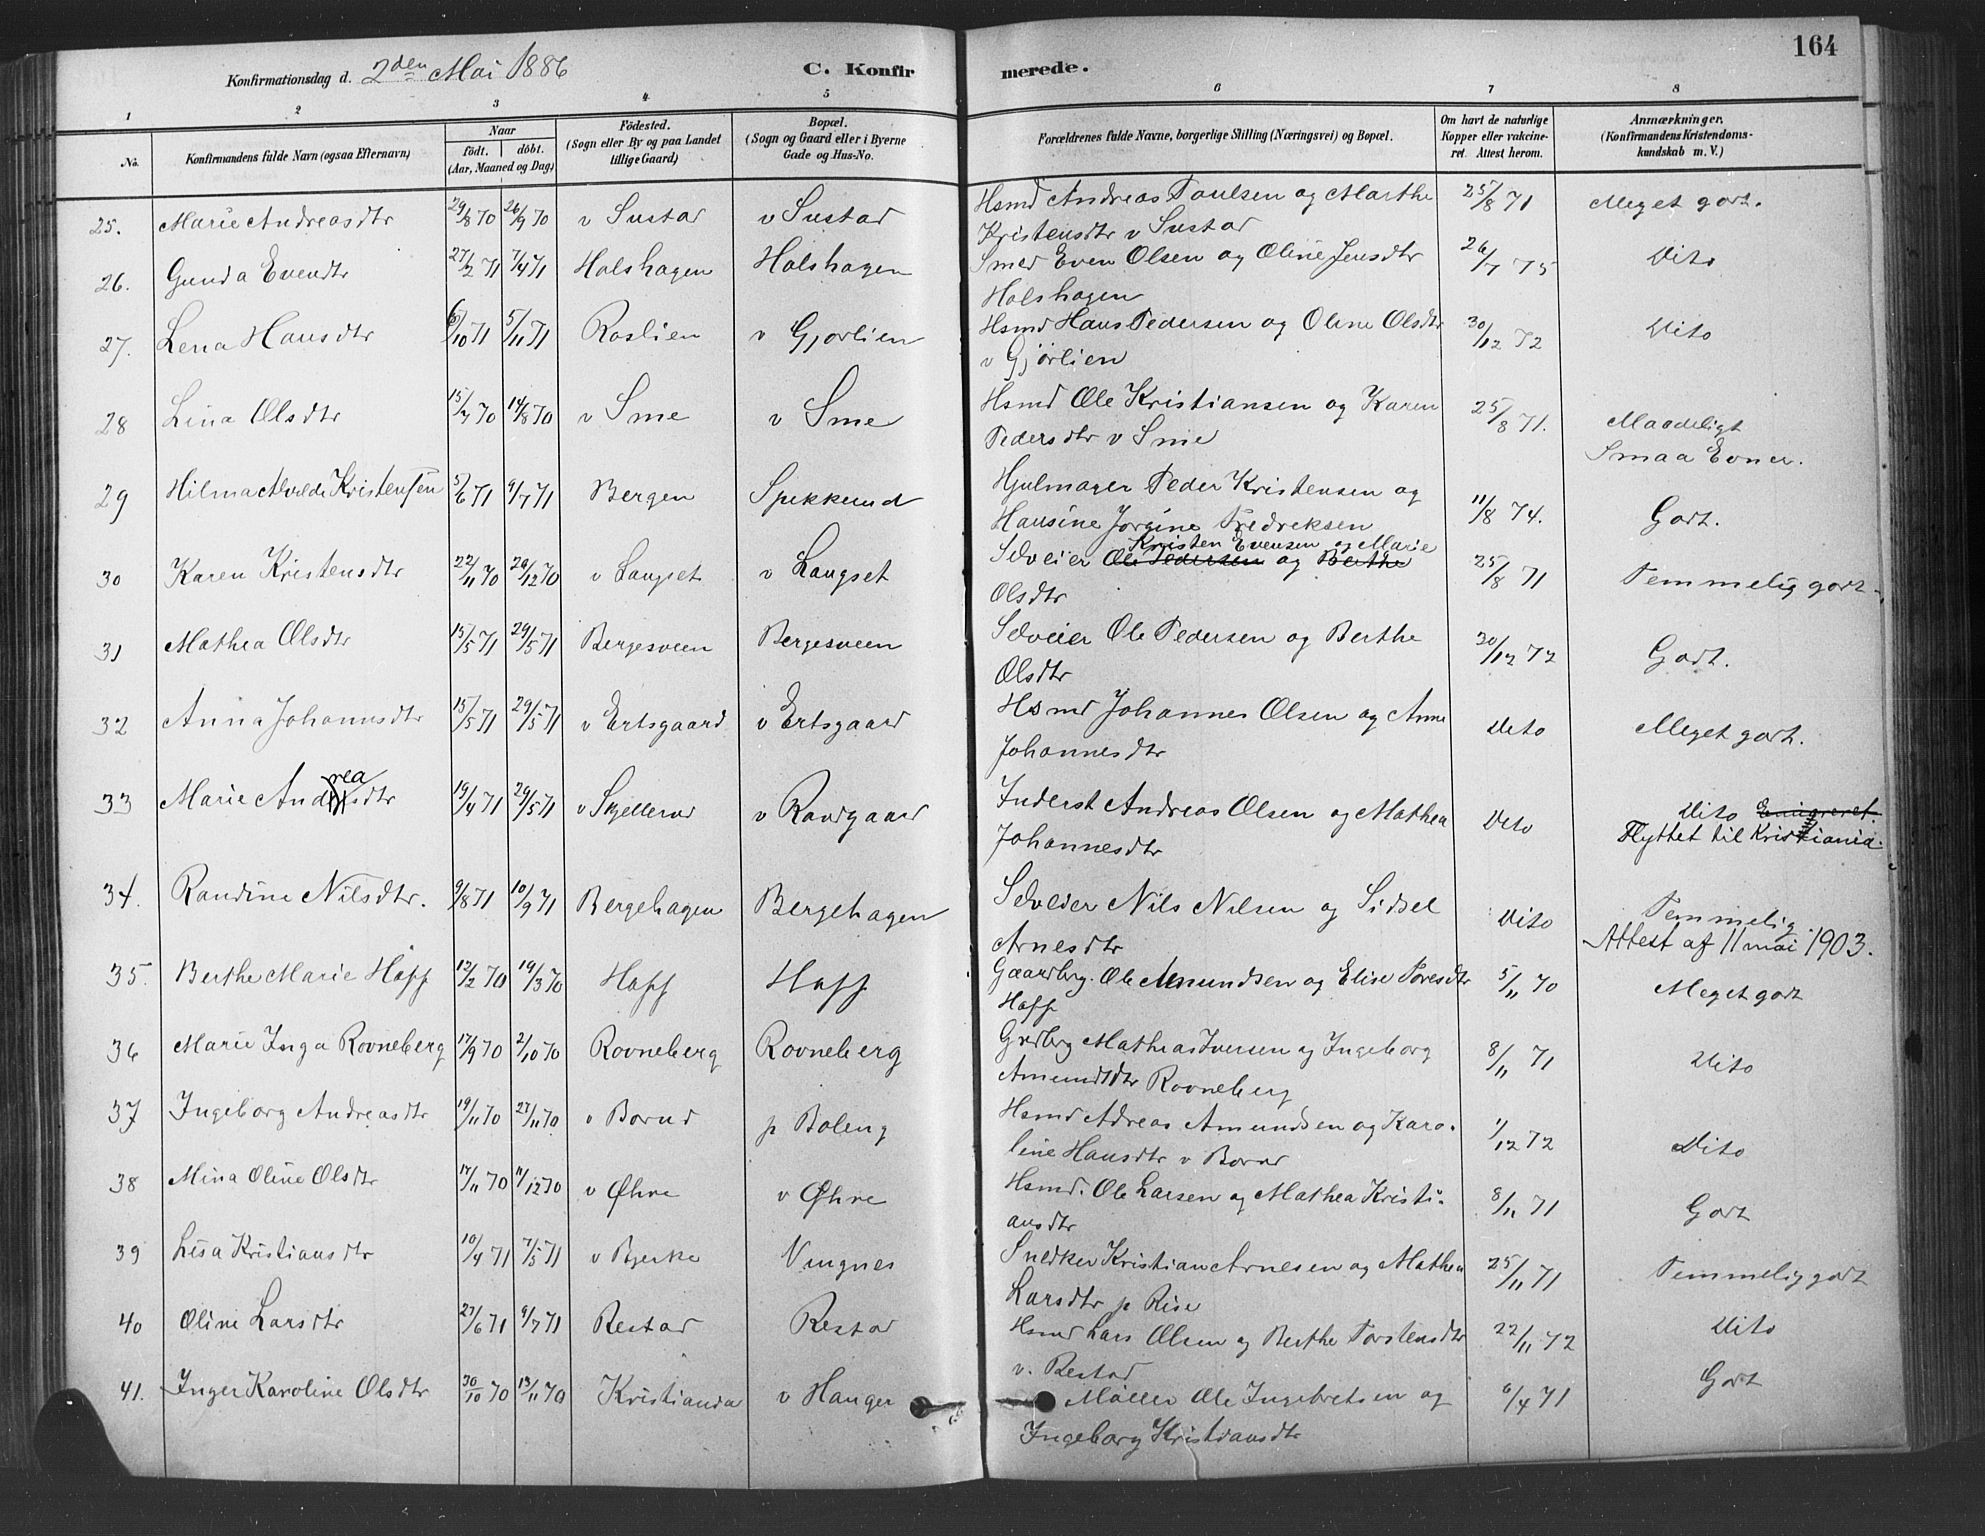 164
Konfirmationsdag d. 2den Mai 1886
C. Konfirmerede.
1 2 3 4 5 6 7 8
No.
Konfirmandens fulde Navn (ogsaa Efternavn)
Naar
födt. döbt.
(Aar, Maaned og Dag)
Födested.
(Sogn eller By og paa Landet
tillige Gaard)
Bopæl.
(Sogn og Gaard eller i Byerne
Gade og Hus-No.
Forældrenes fulde Navne, borgerlige Stilling (Næringsvei) og Bopæl.
Om havt de naturlige
Kopper eller vakcine-
ret. Attest herom.
Anmærkninger.
(Konfirmandens Kristendoms-
kundskab m. V.)
25. Marie Andreasdtr 29/8 70 26/9 70 v Sustad v Sustad Hsmd Andreas Paulsen og Marthe 25/8 71 Meget godt.
Kristensdtr v Sustad
26. Gunda Evendtr 27/2 71 7/4 71 Holshagen Holshagen Smed Even Olsen og Oline Jensdtr 26/7 75 Dito
Holshagen
27. Lena Hansdtr 6/10 71 5/11 71 Roslien v Gjørlien Hsmd Hans Pedersen og Oline Olsdtr 30/12 72 Dito
v Gjørlien
28 Lina Olsdtr 15/7 70 14/8 70 v Sme v Sme Hsmd Ole Kristiansen og Karen 25/8 71. Maadeligt
Pedersdtr v Sme Smaa Evner.
29 Hilma Alvilde Kristensen 5/6 71 9/7 71 Bergen Spikkerud Hjulmager Peder Kristensen og 11/8 74. Godt.
Hansine Jorgine Fredreksen
Kristen Evensen og Marie
30 Karen Kristensdtr 22/11 70 26/12 70 v Laugset v Laugset Selveier Ole Pedersen og Berthe 25/8 71 Temmelig godt.
Olsdtr
31 Mathea Olsdtr 15/5 71 29/5 71 Bergesveen Bergesveen Selveier Ole Pedersen og Berthe 20/12 72 Godt.
Olsdtr
32 Anna Johannesdtr 15/5 71 29/5 71 v Ertsgaard v Ertsgaard Hsmd Johannes Olsen og Anne Dito Meget godt.
Johannesdtr
33 Marie Andreasdtr 19/4 71 29/5 71 v Skjellerud v Raudgaard Inderst Andreas Olsen og Mathea Dito Dito Emigreret.
Johannesdtr Flyttet til Kristiania.
34. Randine Nilsdtr. 9/8 71 10/9 71 Bergehagen Bergehagen Selveier Nils Nilsen og Sidsel Dito Temmelig.
Arnesdtr Attest af 11 mai 1903.
35. Berthe Marie Hoff 12/2 70 19/3 70 Hoff Hoff Gaardbrg. Ole Amundsen og Elise Toresdtr 5/11 70 Meget godt
Hoff
36 Marie Inga Rovneberg 17/9 70 2/10 70 Rovneberg Rovneberg Grdbrg Mathias Iversen og Ingeborg 8/11 71 Dito
Amundsdtr Rovneberg
37 Ingeborg Andreasdtr 19/11 70 27/11 70 v Borud p Boleng Hsmd Adreas Amundsen og Karo- 1/12 72 Dito
line Hansdtr v Borud
38 Mina Oline Olsdtr 17/11 70 11/12 70 v Øhre v Øhre Hsmd. Ole Larsen og Mathea Kristi- 8/11 71 Godt
ansdtr
39 Lisa Kristiansdtr 10/4 71 7/5 71 v Bjerke Vingnes Snedker Kristian Arnesen og Mathea 25/11 71 Temmelig godt
Larsdtr p Rise
40 Oline Larsdtr 27/6 71 9/7 71 Restad Restad Hsmd Lars Olsen og Berthe Torstensdtr 22/11 72 Dito
v. Restad
41. Inger Karoline Olsdtr 30/10 70 13/11 70 Kristiania v Hanger Møller Ole Ingebretsen og 6/4 71 Godt
Ingeborg Kristiansdtr